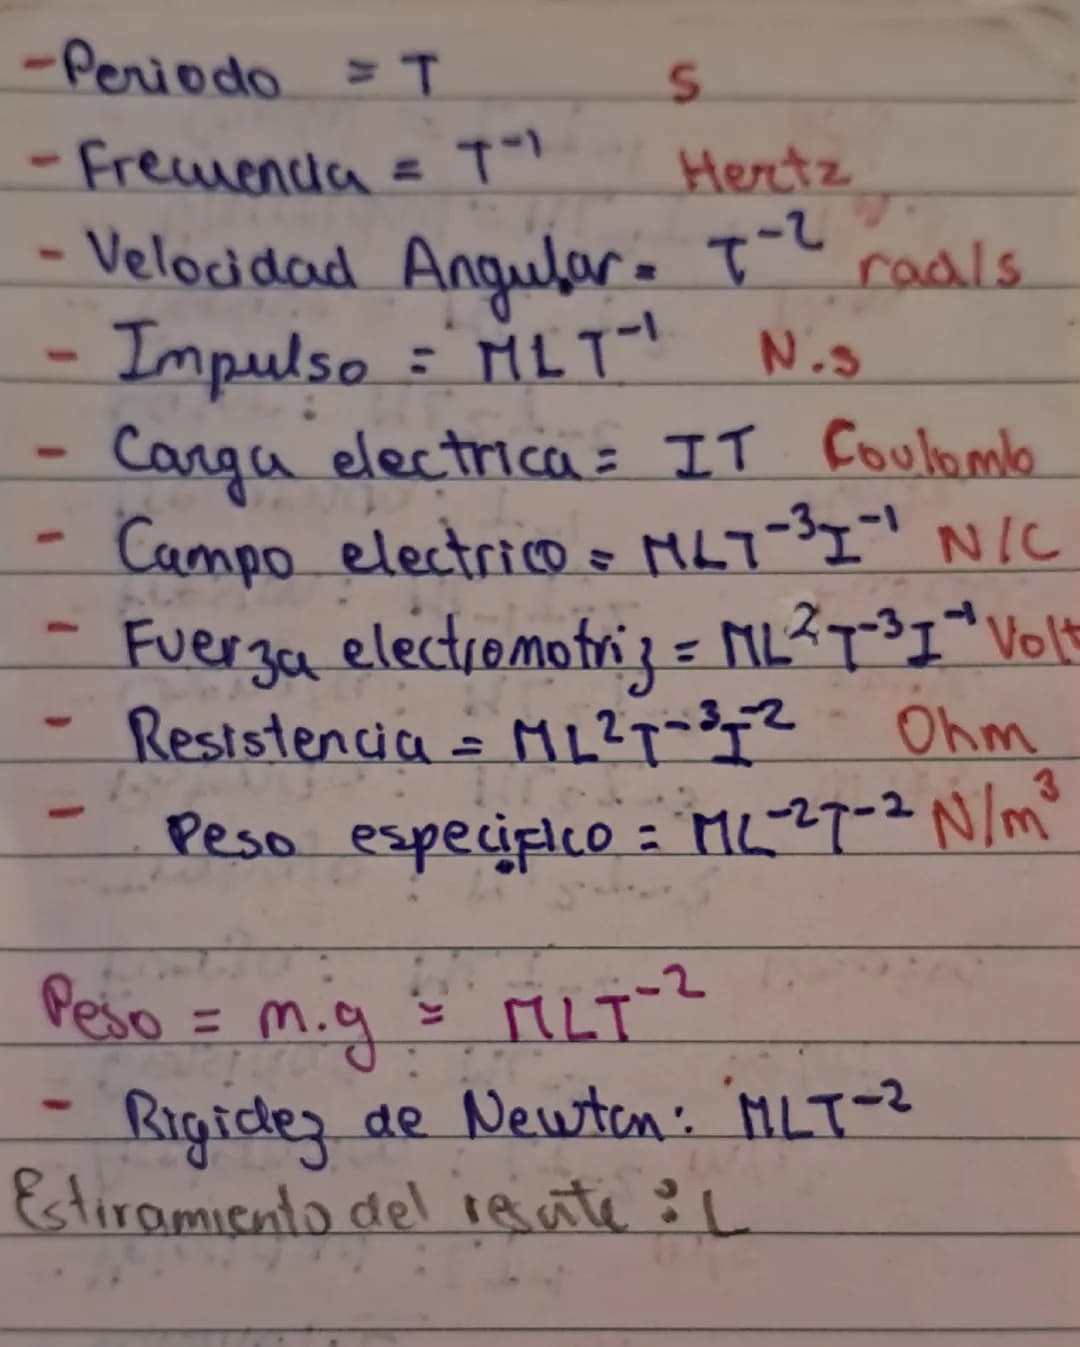 -Periodo = T s
- Frecuencia = T⁻¹ Hertz
- Velocidad Angular = T⁻² rad/s
- Impulso = MLT⁻¹ N.s
- Carga electrica = IT Coulomb
- Campo electrico = MLT⁻³I⁻¹ N/C
- Fuerza electromotriz = ML²T⁻³I⁻¹ Volt
- Resistencia = ML²T⁻³I⁻² Ohm
- Peso especifico = ML⁻²T⁻² N/m³
Peso = m.g = MLT⁻²
- Rigidez de Newton: MLT⁻²
Estiramiento del resute : L